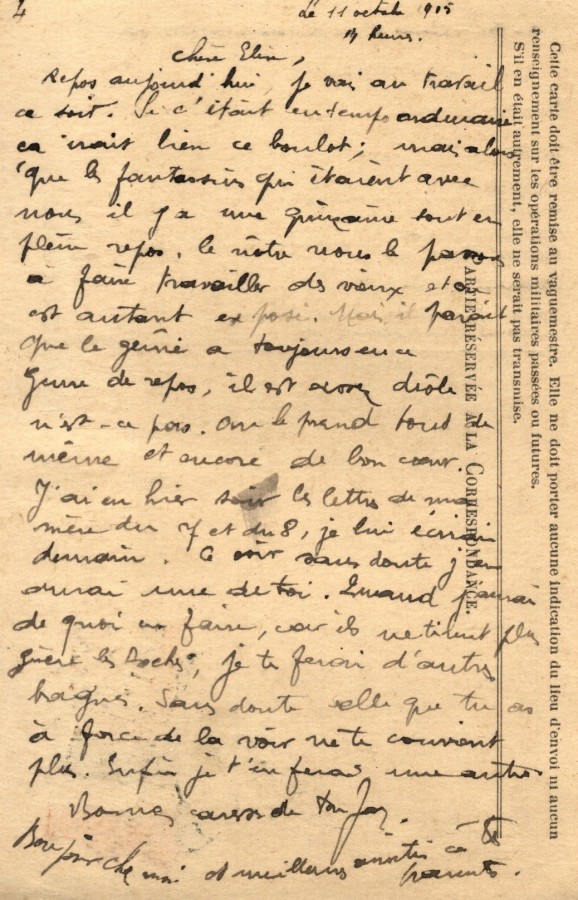 4
Le 11 octobre 1915
Chère Elise,
Repos aujourd'hui, je vais au travail
ce soir. Si c'était en temps ordinaire
ça irait bien ce boulot; mais alors
que les fantassins qui étaient avec
nous il y a une quinzaine sont en
plein repos, le nôtre nous le passons
à faire travailler des vieux et on
est autant exposé. Mais il parait
que le génie a toujours ce
genre de repos, il est assez drôle
n'est-ce pas. On le prend tout de
même et encore de bon cœur.
J'ai eu hier soir les lettres de ma
mère du 7 et du 8, je lui écrirai
demain. Ce soir sans doute j'en
aurai une de toi. Quand j'aurai
de quoi en faire, car ils ne tirent plus
guère les Boches, je te ferai d'autres
bagues. Sans doute celle que tu as
à force de la voir ne te convient
plus. Enfin je t'en ferai une autre
caresse de ton
Bonjour chez moi et meilleures amitiés à
parents.
Cette carte doit être remise au vaguemestre. Elle ne doit porter aucune indication du lieu d'envoi ni aucun
renseignement sur les opérations militaires passées ou futures.
S'il en était autrement, elle ne serait pas transmise.
PARTIE RÉSERVÉE A LA CORRESPONDANCE.